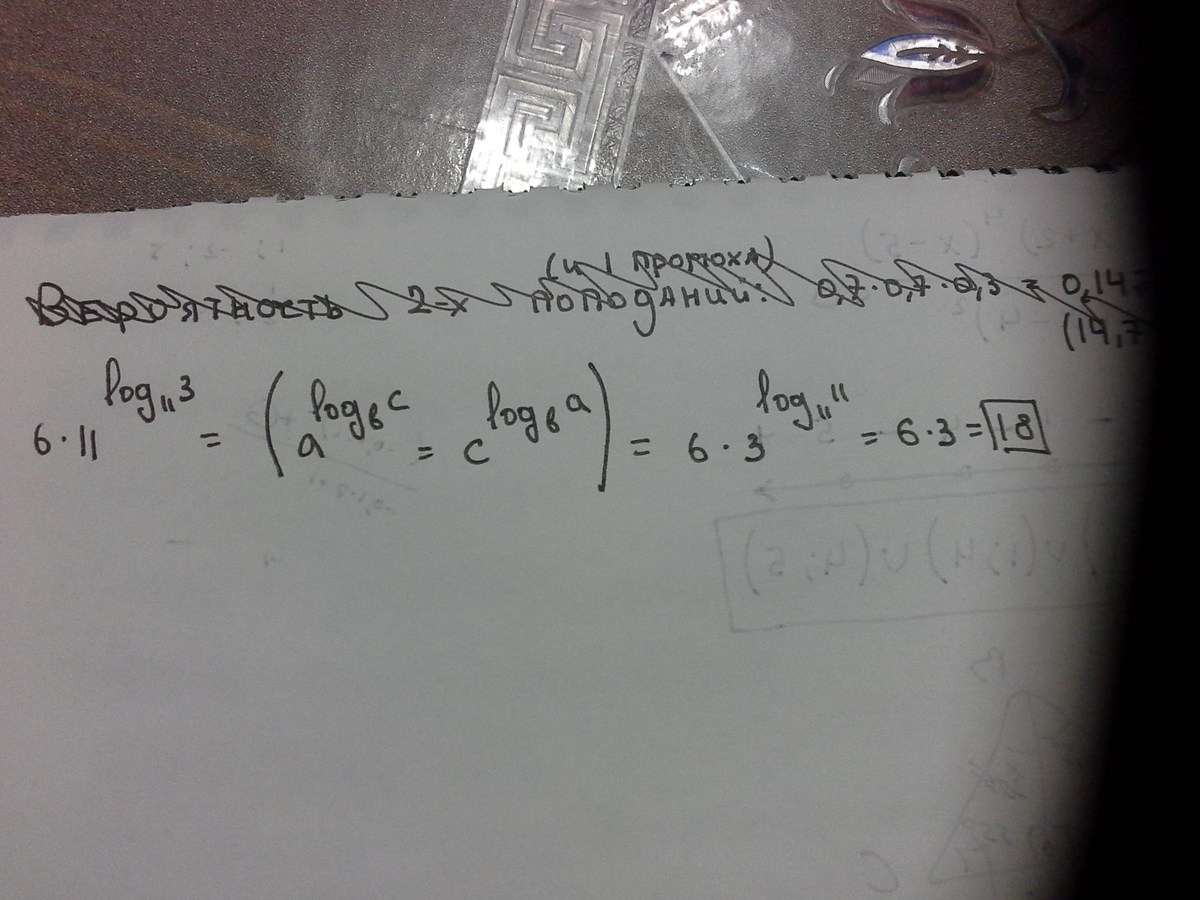 (и 1 промоха)
Вероятность 2-х поподаний: 0,7·0,7·0,3 = 0,147
(14,7
6·11^log₁₁3 = (a^logвc = c^logвa) = 6·3^log₁₁11 = 6·3 = 18